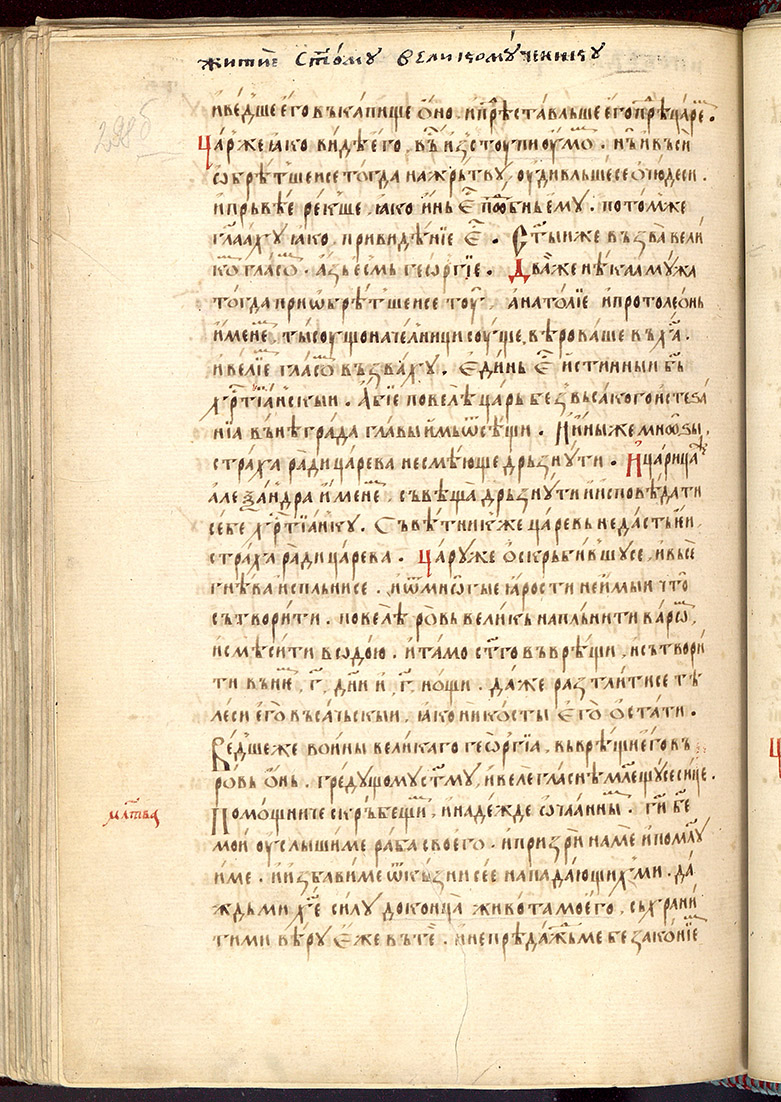 житїе ст҃ому великомꙋченикꙋ
298б
и́ведше е҆го въ капище ѻ҆но. и҆ прѣставльше е҆го прѣ ц҃аре.
Цар҃ же ꙗко видѣ е҆го, въ и҆зстоупи оу҆мо. нь и҆ въси
ѡ҆брѣт'шеи се тогда на жрьтвꙋ, оу҆дивлꙗше се ѡ҆ чюдеси.
и҆ прьвѣе рекꙋще, ꙗко и҆нь е҆ст҃ подобнь е҆мꙋ. потом же
гл҃аахꙋ ꙗко, привидѣнїе е҆ст҃. Ст҃ыи же възва вели
ко гласо. азь е҆смь геѡргїе. Два же нѣкаа мꙋжа
тогда приѡ҆брѣт'шеи се тоу҆, анатолїе и҆ протолеѻ҆нь
и҆мене, тысоущоначелници соуще, вѣроваше въ х҃а.
и҆ велїе гласо възвахꙋ. е҆динь е҆ст҃ и҆стинныи б҃ь
хр҃тїанскыи. Абїе повелѣ царь без въсакого и҆стеза
нїа вънѣ града главы и҆мь ѿсѣщи. И҆ ины же мноѕы,
страха ради царева не смѣюще дрьзнꙋти. И҆ царица
але ѯандра и҆мене, съвѣща дрьзнꙋти и҆ и҆сповѣдати
себе хр҃тїанкꙋ. Съвѣтник же царевь не дасть е҆и,
страха ради царева. Царꙋ же ѻ҆скрьбив'шꙋ се, и҆ все
гнѣва и҆спльни се. и҆ ѿ мнѡгые ꙗрости не и҆мыи что
сътворити. повелѣ ровь великь напльнити варѡ,
и҆ смѣсити в содою. и҆ тамо ст҃го въврѣщи, и҆ сътвори
ти въ не, г҃, дн҃и и҆, г҃, нощи. даже разтлити се тѣ
леси е҆го въсачьскыи, ꙗко ни косты е҆го ѻ҆стати.
Ведше же воины великаго геѡргїа, въврѣщи е҆го въ
ровь ѻ҆нь. гредꙋщомꙋ ст҃мꙋ, и҆ велегласнѣ мл҃ещꙋ се сице.
мл҃тва
Помощниче скрьбещи, и҆ надежде ѡ҆чаанны. г҃и б҃е
мои оу҆слыши ме раба своего. и҆ призри на ме и҆ помлꙋ
и҆ ме. и҆ и҆збави ме ѿ кьзни сее нападающих ми. да
ждь ми хе҃ силꙋ до конца живота моего, съхрани
ти ми вѣрꙋ е҆же въ те. и҆ не прѣдаждь ме безаконїе